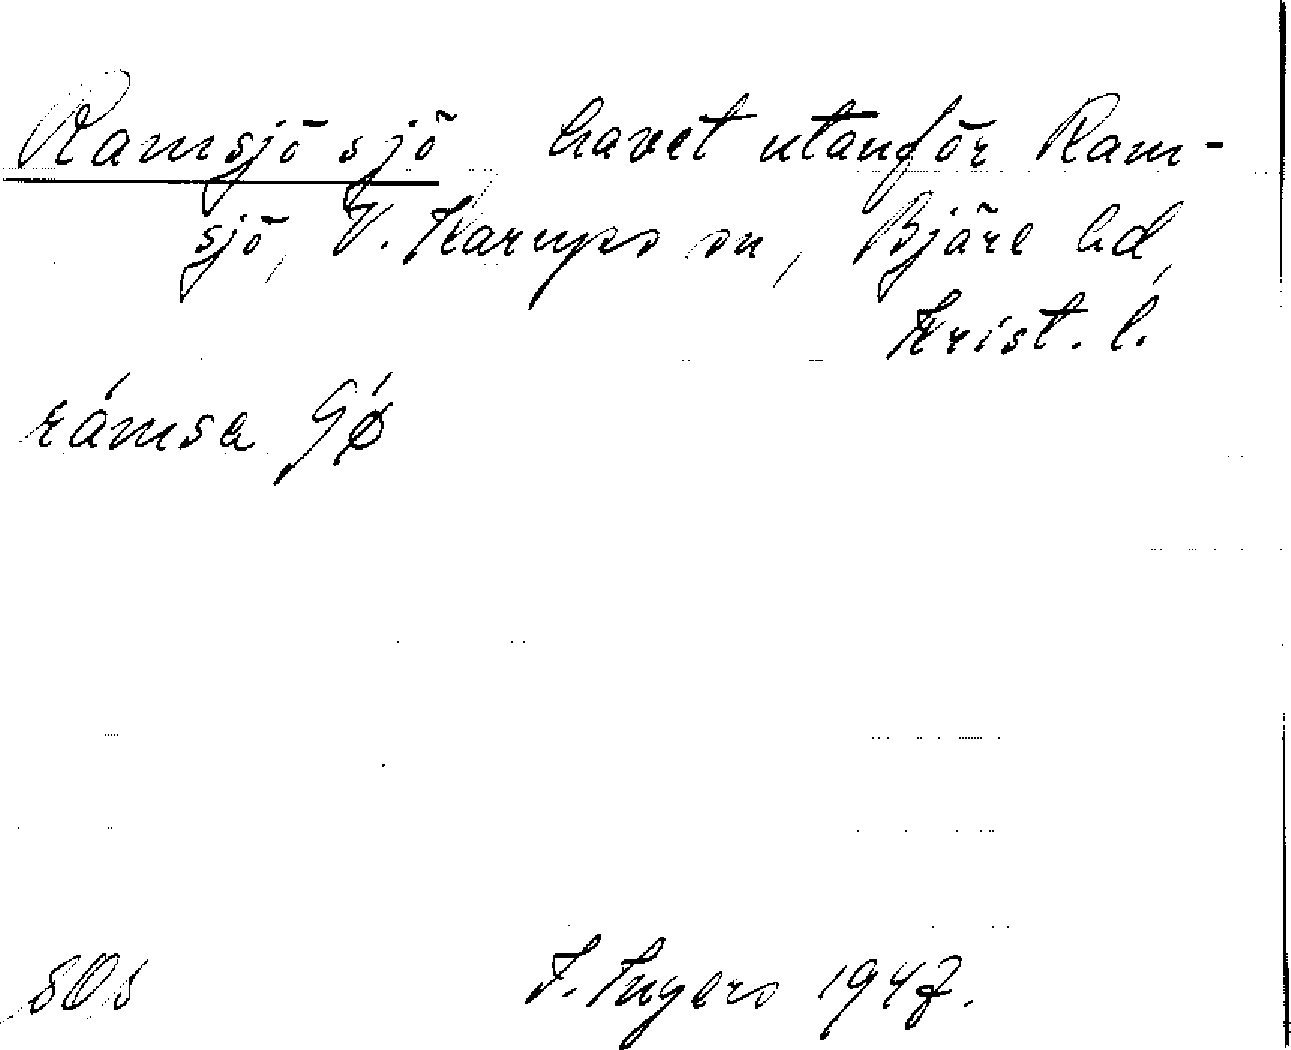 Ramsjö sjö havet utanför Ram-
sjö, V. Karups sn, Bjäre hd,
Krist. l.
rámsa
I. Ingers 1947.